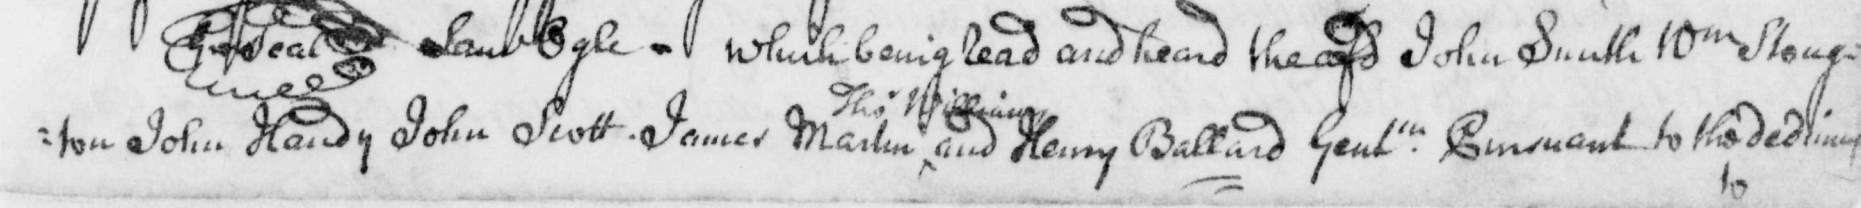 Seal Saml Ogle - which being read and heard the afsd John Smith Wm Stough=
Thos Williams
=ton John Handy John Scott. James Martin ^ and Henry Ballard Gentn. Pursuant to the dedimus
to